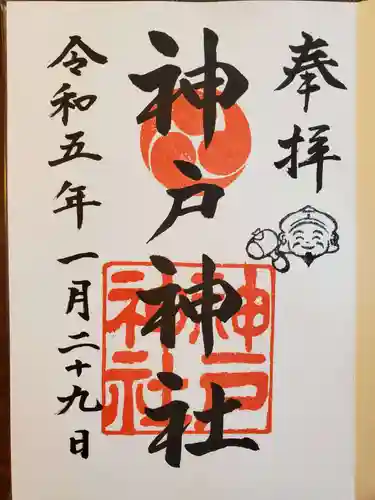 奉拝
神戸神社
神戸
神社
令和五年一月二十九日